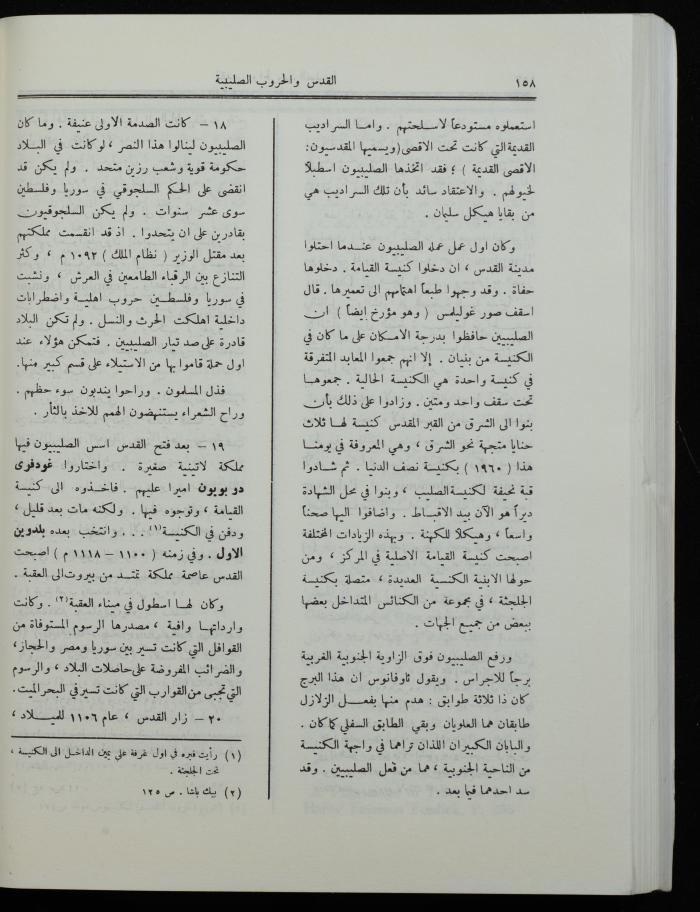 ١٥٨
القدس والحروب الصليبية
استعملوه مستودعاً لاسلحتهم . واما السراديب
القديمة التي كانت تحت الاقصى (ويسميها المقدسيون:
الاقصى القديمة ) ؛ فقد اتخذها الصليبيون اسطبلاً
لخيولهم . والاعتقاد سائد بأن تلك السراديب هي
من بقايا هيكل سليمان .
وكان اول عمل عمله الصليبيون عندما احتلوا
مدينة القدس ، ان دخلوا كنيسة القيامة . دخلوها
حفاة . وقد وجهوا طبعاً اهتمامهم الى تعميرها . قال
اسقف صور غوليلمس ( وهو مؤرخ ايضاً ) ان
الصليبيين حافظوا بدرجة الامكان على ما كان في
الكنيسة من بنيان . إلا انهم جمعوا المعابد المتفرقة
في كنيسة واحدة هي الكنيسة الحالية . جمعوها
تحت سقف واحد ومتين . وزادوا على ذلك بأن
بنوا الى الشرق من القبر المقدس كنيسة لها ثلاث
حنايا متجهة نحو الشرق ، وهي المعروفة في يومنا
هذا ( ١٩٦٠ ) بكنيسة نصف الدنيا . ثم شادوا
قبة نحيفة لكنيسة الصليب ، وبنوا في محل الشهادة
ديراً هو الآن بيد الاقباط . واضافوا اليها صحناً
واسعاً ، وهيكلاً للكهنة . وبهذه الزيادات المختلفة
اصبحت كنيسة القيامة الاصلية في المركز ، ومن
حولها الابنية الكنسية العديدة ، متصلة بكنيسة
الجلجثة ، في مجموعة من الكنائس المتداخل بعضها
ببعض من جميع الجهات .
ورفع الصليبيون فوق الزاوية الجنوبية الغربية
برجاً للاجراس . ويقول ثاوفانوس ان هذا البرج
كان ذا ثلاثة طوابق : هدم منها بفعل الزلازل
طابقان هما العلويان وبقي الطابق السفلي كما كان .
والبابان الكبيران اللذان تراهما في واجهة الكنيسة
من الناحية الجنوبية ، هما من فعل الصليبيين . وقد
سد احدهما فيما بعد .
١٨ – كانت الصدمة الاولى عنيفة . وما كان
الصليبيون لينالوا هذا النصر ، لو كانت في البلاد
حكومة قوية وشعب رزين متحد . ولم يكن قد
انقضى على الحكم السلجوقي في سوريا وفلسطين
سوى عشر سنوات . ولم يكن السلجوقيون
بقادرين على ان يتحدوا . اذ قد انقسمت مملكتهم
بعد مقتل الوزير ( نظام الملك ) ١٠٩٢ م ، وكثر
التنازع بين الرقباء الطامعين في العرش ، ونشبت
في سوريا وفلسطين حروب اهلية واضطرابات
داخلية اهلكت الحرث والنسل . ولم تكن البلاد
قادرة على صد تيار الصليبيين . فتمكن هؤلاء عند
اول حملة قاموا بها من الاستيلاء على قسم كبير منها.
فذل المسلمون . وراحوا يندبون سوء حظهم .
وراح الشعراء يستنهضون الهمم للاخذ بالثأر .
١٩ – بعد فتح القدس اسس الصليبيون فيها
مملكة لاتينية صغيرة . واختاروا غودفري
دو بويون اميرا عليهم . فاخذوه الى كنيسة
القيامة ، وتوجوه فيها . ولكنه مات بعد قليل ،
ودفن في الكنيسة (١) . . . وانتخب بعده بلدوين
الاول . وفي زمنه ( ١١٠٠ – ١١١٨ م ) اصبحت
القدس عاصمة مملكة تمتد من بيروت الى العقبة .
وكان لها اسطول في ميناء العقبة (٢) . وكانت
وارداتها وافية ، مصدرها الرسوم المستوفاة من
القوافل التي كانت تسير بين سوريا ومصر والحجاز،
والضرائب المفروضة على حاصلات البلاد ، والرسوم
التي تجبى من القوارب التي كانت تسير في البحر الميت.
٢٠ – زار القدس ، عام ١١٠٦ للميلاد ،
(١) رأيت قبره في اول غرفة على يمين الداخل الى الكنيسة ،
تحت الجلجثة .
(٢) بيك باشا . ص ١٢٥